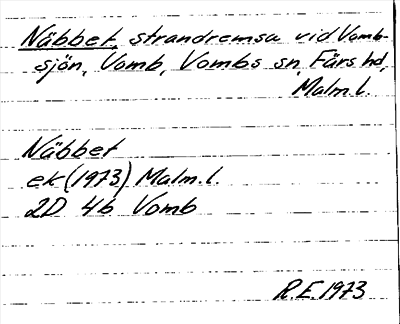 Näbbet, strandremsa vid Vomb-
sjön, Vomb, Vombs sn, Färs hd,
Malm. l.
Näbbet
ek (1973) Malm. l.
2D 4b Vomb
R.E. 1973